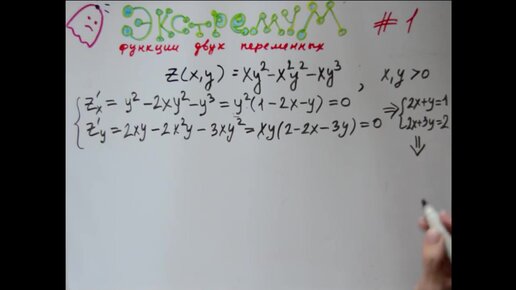 ЭКСТРЕМУМ #1
функции двух переменных
Z(x,y) = xy² - x²y² - xy³, x,y > 0
{ Z'ₓ = y² - 2xy² - y³ = y²(1 - 2x - y) = 0
{ Z'ᵧ = 2xy - 2x²y - 3xy² = xy(2 - 2x - 3y) = 0
⇒ { 2x+y=1
{ 2x+3y=2
⇓